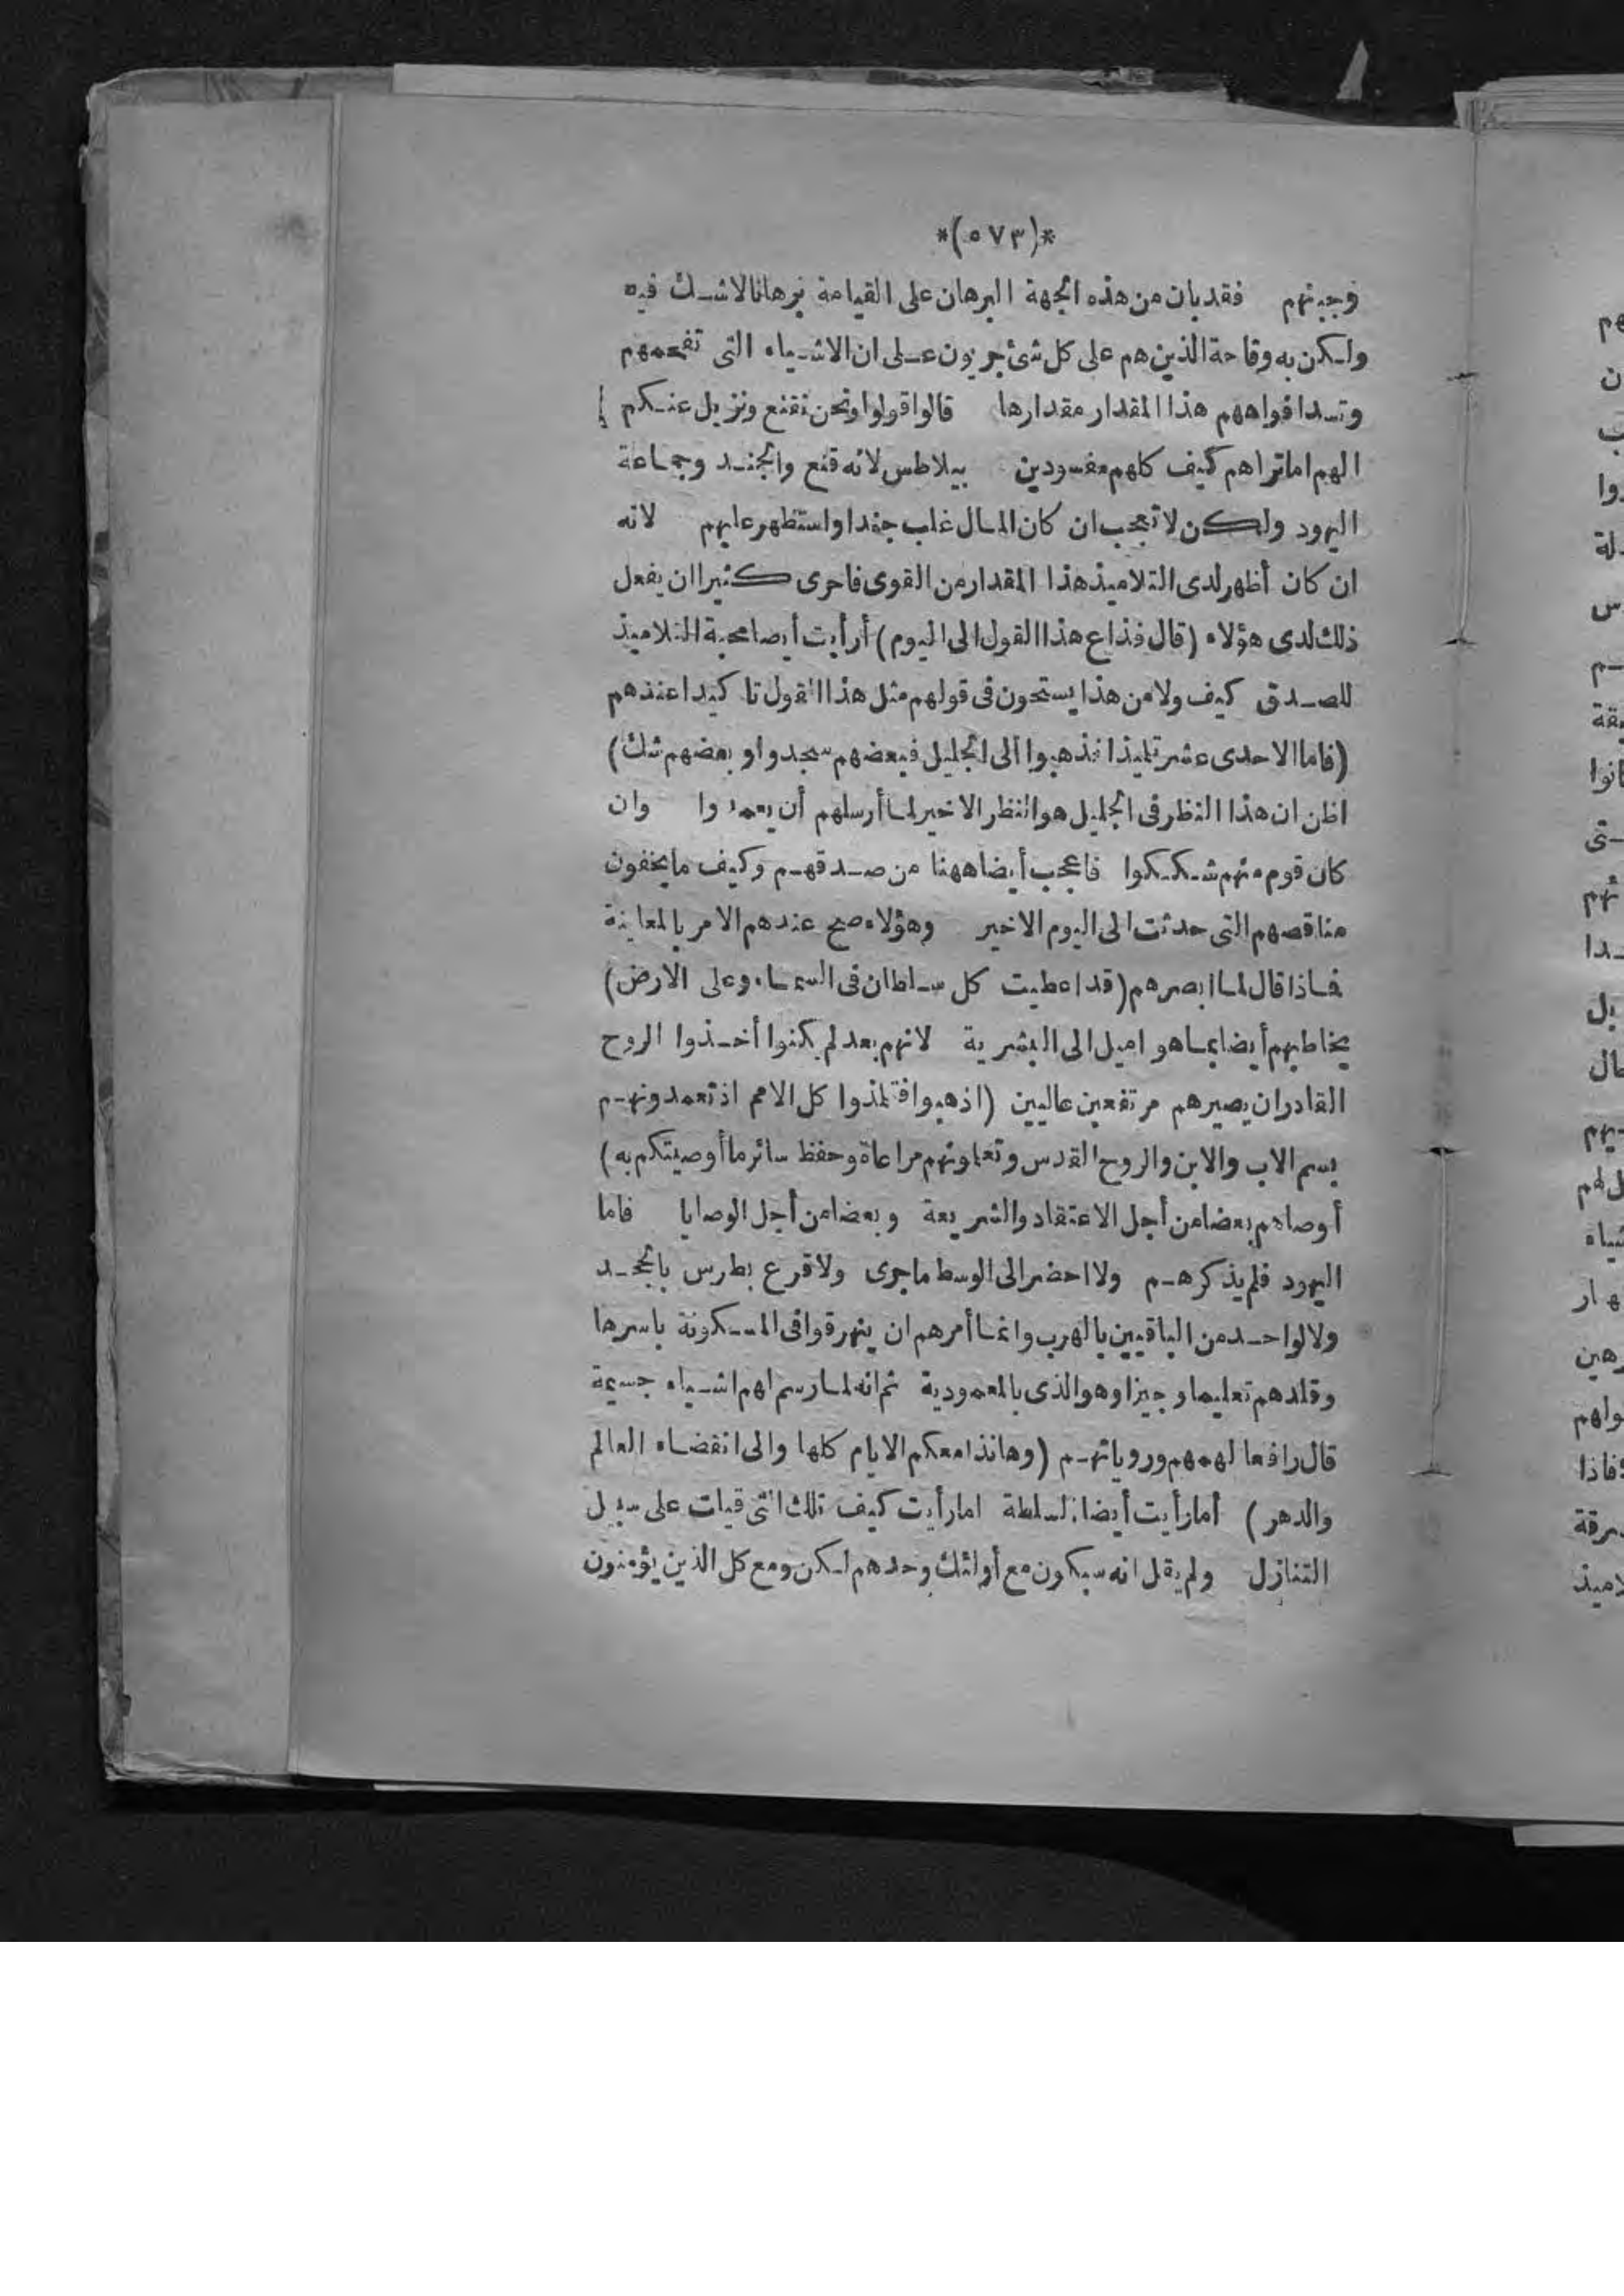 *(٥٧٣)*
وجبنهم فقد بان من هذه الجهة البرهان على القيامة برهانا لا شك فيه
ولكن به وقاحة الذين هم على كل شئ جريون على ان الاشياء التى تفحمهم
وتسد افواههم هذا المقدار مقدارها قالوا قولوا ونحن نقنع ونزيل عنكم
الهم اما تراهم كيف كلهم مفسودين بيلاطس لانه قنع والجند وجماعة
اليهود ولكن لا تعجب ان كان المال غلب جندا واستظهر عليهم لانه
ان كان أظهر لدى التلاميذ هذا المقدار من القوى فاحرى كثيرا ان يفعل
ذلك لدى هؤلاء (قال فذاع هذا القول الى اليوم) أرأيت أيضا محبة التلاميذ
للصدق كيف ولا من هذا يستحون فى قولهم مثل هذا القول تاكيدا عندهم
(فاما الاحدى عشر تلميذا فذهبوا الى الجليل فبعضهم سجدوا وبعضهم شك)
اظن ان هذا النظر فى الجليل هو النظر الاخير لما أرسلهم أن يعمدوا وان
كان قوم منهم شككوا فاعجب أيضا ههنا من صدقهم وكيف ما يخفون
مناقصهم التى حدثت الى اليوم الاخير وهؤلاء صح عندهم الامر بالمعاينة
فماذا قال لما ابصرهم (قد اعطيت كل سلطان فى السماء وعلى الارض)
يخاطبهم أيضا بما هو اميل الى البشرية لانهم بعد لم يكنوا أخذوا الروح
القادر ان يصيرهم مرتفعين عاليين (اذهبوا فتلمذوا كل الامم اذ تعمدونهم
بسم الاب والابن والروح القدس وتعلمونهم مراعاة وحفظ سائر ما أوصيتكم به)
أوصاهم بعضا من أجل الاعتقاد والشريعة وبعضا من أجل الوصايا فاما
اليهود فلم يذكرهم ولا احضر الى الوسط ما جرى ولا قرع بطرس بالجحد
ولا لواحد من الباقيين بالهرب وانما أمرهم ان يتفرقوا فى المسكونة باسرها
وقلدهم تعليما وجيزا وهو الذى بالمعمودية ثم انه لما رسم لهم اشياء جسيمة
قال رافعا لهمهم وروياتهم (وهانذا معكم الايام كلها والى انقضاء العالم
والدهر) أما رأيت أيضا السلطة اما رأيت كيف تلك التى قيلت على سبيل
التنازل ولم يقل انه سيكون مع أولئك وحدهم لكن ومع كل الذين يؤمنون